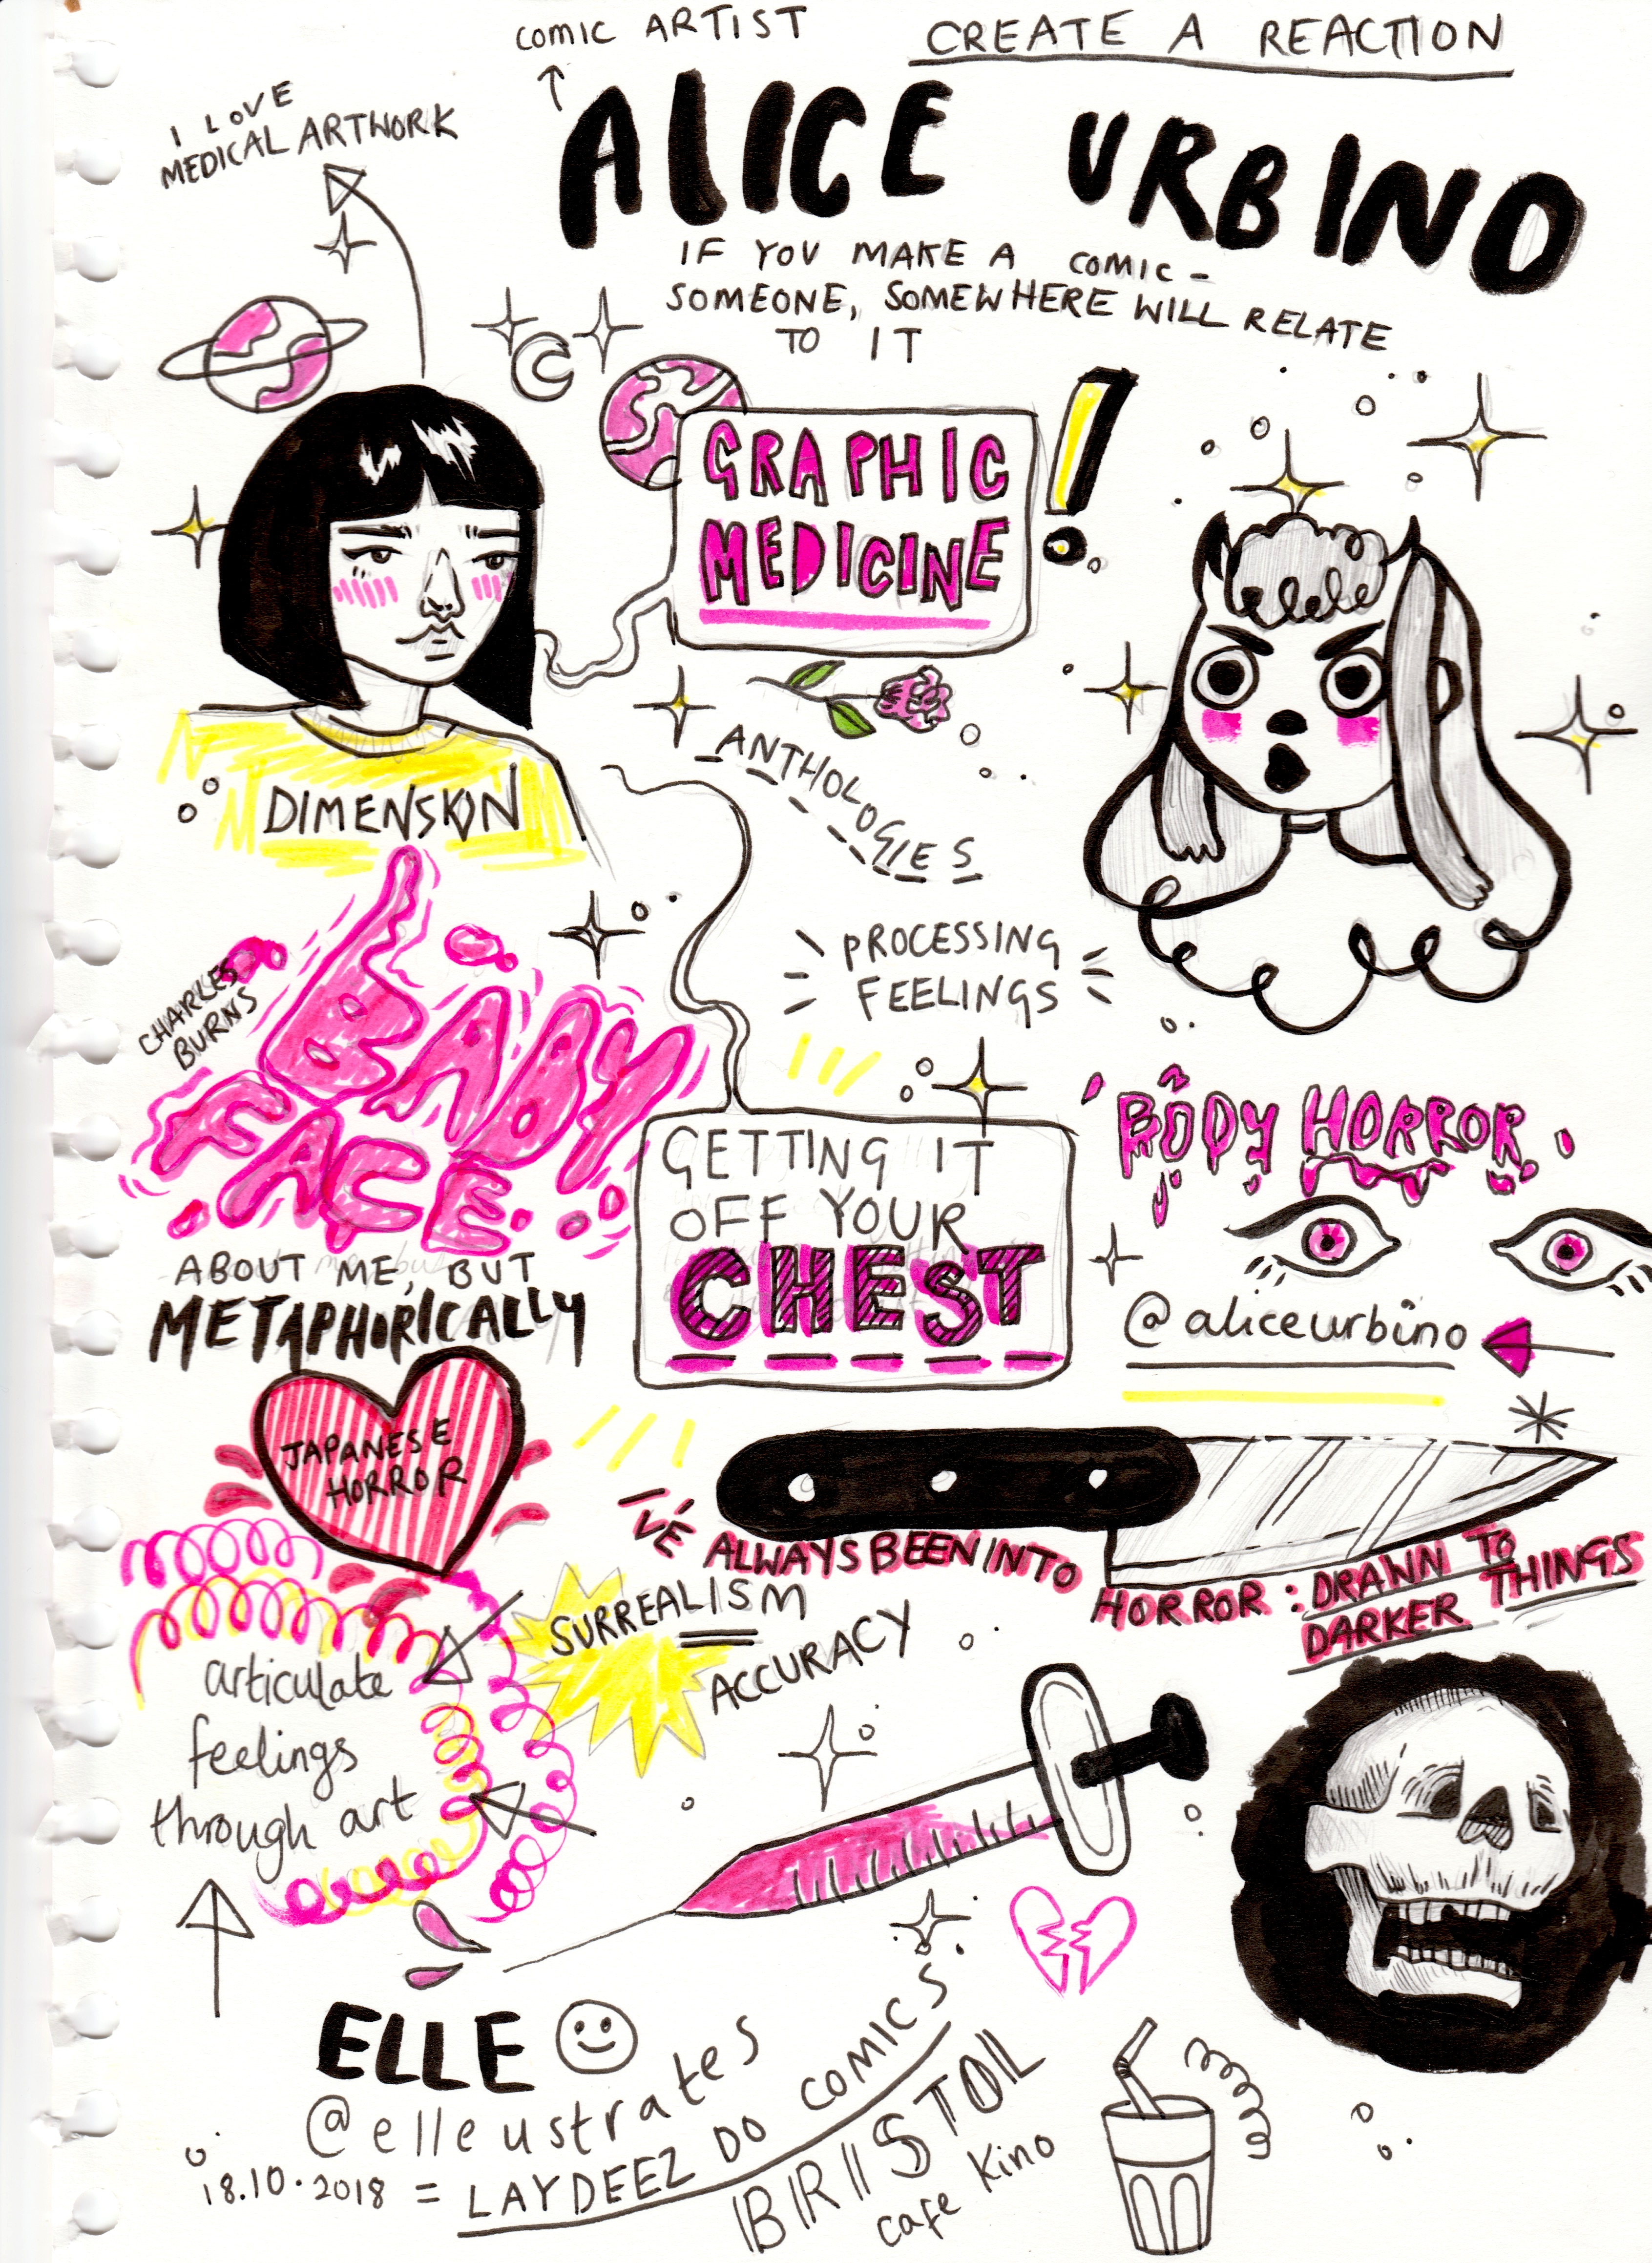 COMIC ARTIST
CREATE A REACTION
I LOVE
MEDICAL ARTWORK
ALICE URBINO
IF YOU MAKE A COMIC -
SOMEONE, SOMEWHERE WILL RELATE
TO IT
GRAPHIC
MEDICINE
!
DIMENSION
ANTHOLOGIES
PROCESSING
FEELINGS
CHARLES
BURNS
BABY
FACE
ABOUT ME, BUT
METAPHORICALLY
GETTING IT
OFF YOUR
CHEST
BODY HORROR
@aliceurbino
JAPANESE
HORROR
I'VE ALWAYS BEEN INTO
HORROR : DRAWN TO
DARKER THINGS
SURREALISM
ACCURACY
articulate
feelings
through art
ELLE
@elleustrates
18.10.2018 = LAYDEEZ DO COMICS
BRISTOL
Cafe Kino